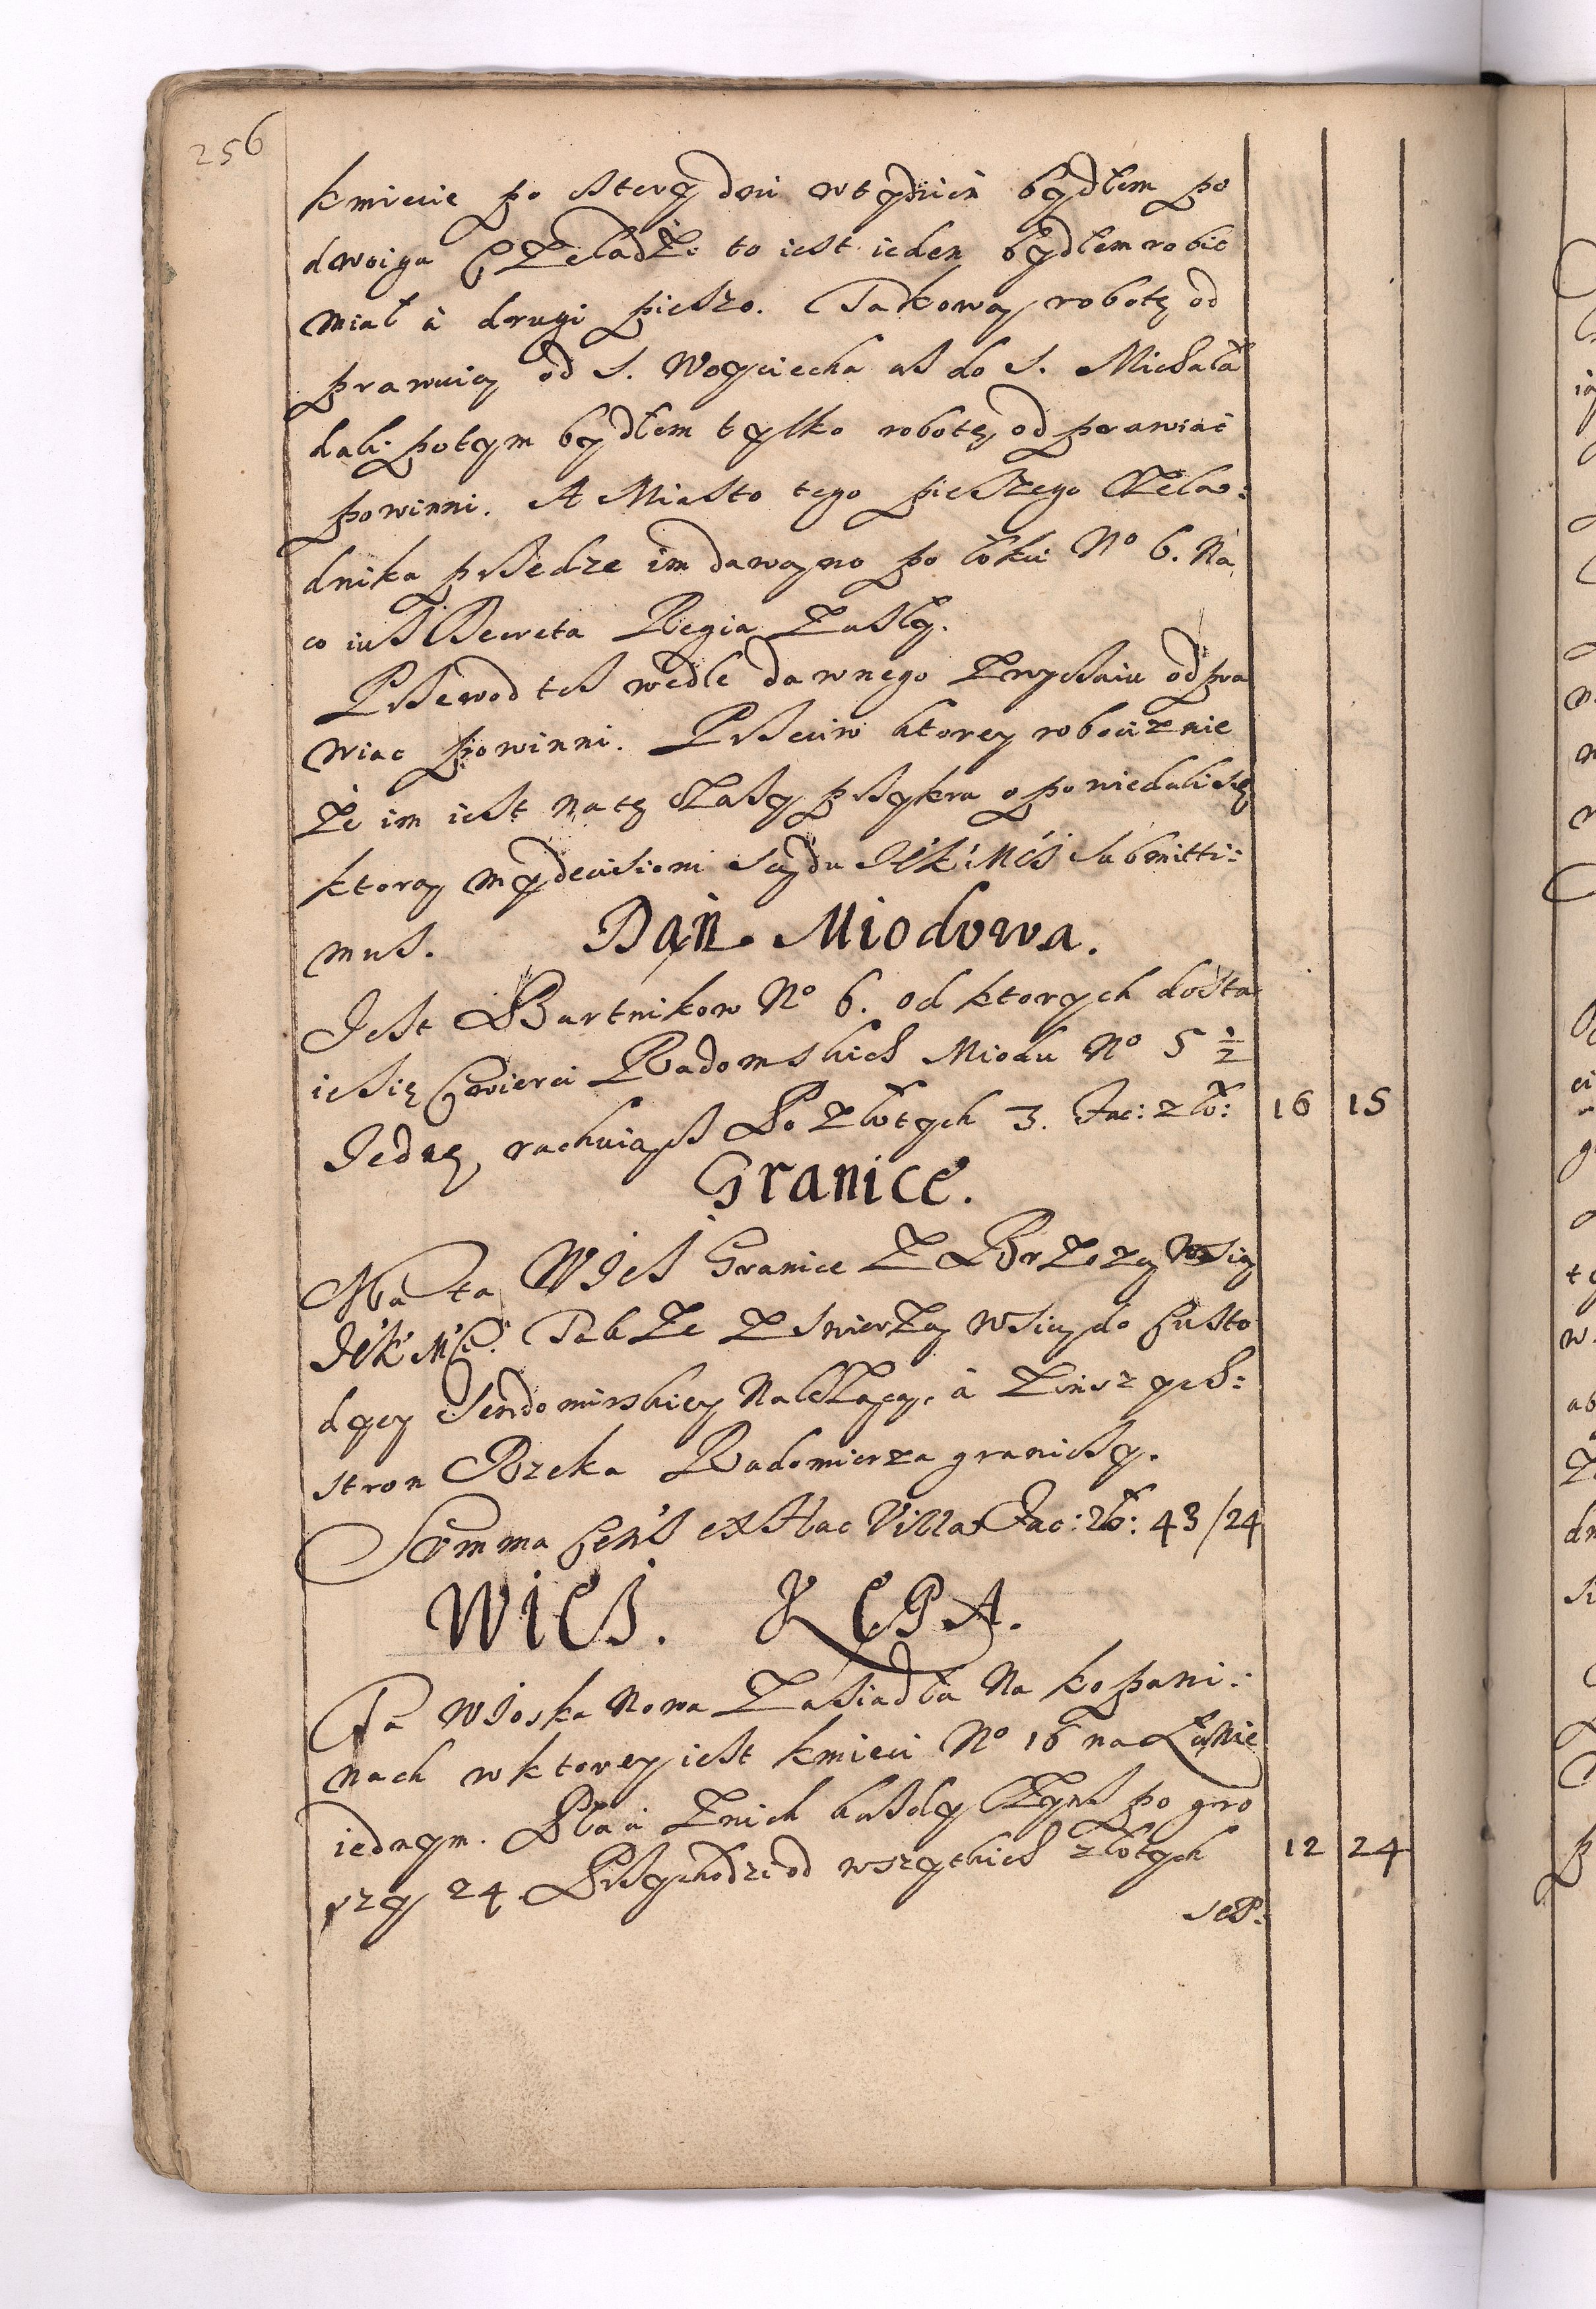 256
kmiecie po sterÿ dni wtÿdzień bÿdłem po
dwoiga Czeladzi to iest ieden bÿdłem robic
miał à drugi pieszo. Takową robotę od
prawuią od S. Woÿciecha asz do S. Michała
dali potÿm bÿdłem tÿlko robotę od prawiać
powinni. A Miasto tego pieszego Czela:
dnika przedze im dawano po łokci No 6. Na
co iusz Decreta Regia Zaszłÿ.
Przewod tesz wedle dawnego Zwÿczaiu odpra
wiac powinni. Przeciw ktorey robociznie
Że im iest na tę czasÿ przÿkra opowiedali się
ktorą mÿ decisioni Sądu JeK: Mci submitti:
mus.
Dań Miodowa.
Jest Bartnikow No 6. od ktorÿch dosta
ie się Cwierci Radomskich Miodu No 5 ½
Jednę rachuiąsz Po Złotÿch 3. Fac: zło: 16 15
Granice.
Ma ta Wies Granice Z Brzozą Wsią
JeK Mci. Takze Z Swierżą Wsią do Custo
dÿey Sendomirskiey Należącą, à Zinszÿch:
stron Rzeka Radomierza graniczÿ.
Summa Cens ex Hac Villa Fac: Zło: 43/24
Wies. KĘPA.
Ta Wioska Nowa Zasiadła Na kopani:
nach w ktorey iest kmieci No 16 na Łanie
iednÿm. Płaci Znich kasdÿ Czÿnsz po gro
szÿ 24 Przÿchodzi od wszÿtkich złotÿch 12 24
Sep: